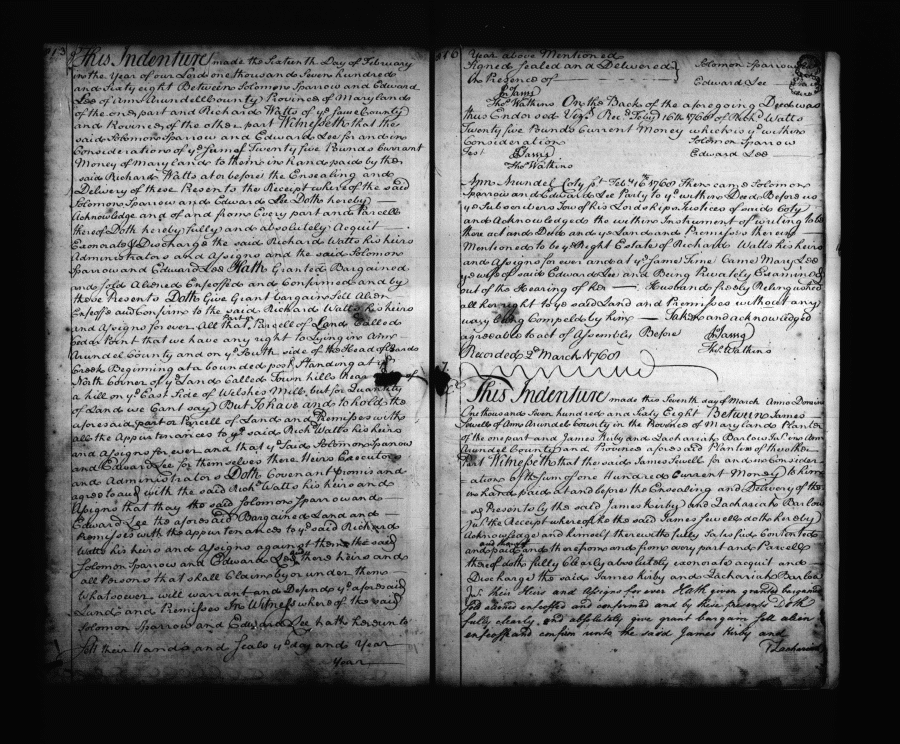 This Indenture made the Sixteenth Day of February
in the Year of our Lord one thousand Seven hundred
and Sixty eight Between Solomon Sparrow and Edward
Lee of Ann Arundell County Province of Maryland
of the one part and Richard Watts of ye Same County
and Province of the other part Witnesseth that the
said Solomon Sparrow and Edward Lee for and in
Consideration of ye Sum of Twenty five Pounds Currant
Money of Maryland to them in hand paid by the
said Richard Watts at or before the Ensealing and
Delivery of these Presents the Receipt whereof the said
Solomon Sparrow and Edward Lee Doth hereby
Acknowledge and of and from Every part and Parcell
thereof Doth hereby fully and absolutely Acquit
Exonorate & Discharge the said Richard Watts his heirs
Administrators and Assigns and the said Solomon
Sparrow and Edward Lee Hath Granted Bargained
and Sold Aliened Enfeoffed and Confirmed and by
these Presents Doth Give Grant bargain Sell Alien
Enfeoff and Confirm to the said Richard Watts his heirs
and Assigns for ever All that Part or Parcell of Land Called
Point that we have any right to Lying in Ann
Arundel County and on ye South side of the Head of
Creek Beginning at a bounded post Standing at ye
North Corner of ye Lands Called Town hills near
a hill on ye East Side of Welshes Mill, but for Quantity
of Land we Cant say) But To have and to hold the
aforesaid part or Parcell of Land and Premises with
all the Appurtenances to ye said Richd Watts his heirs
and Assigns for ever and that ye Said Solomon Sparrow
and Edward Lee for themselves there Heirs Executors
and Administrators Doth Covenant promis and
agree to and with the said Richd Watts his heirs and
Assigns that thay the said Solomon Sparrow and
Edward Lee the aforesaid Bargained Land and
Premisses with the appurtenances to ye said Richard
Watts his heirs and Assigns against them the said
Solomon Sparrow and Edward Lee there heirs and
all Persons that shall Claim by or under them
Whatsoever will warrant and Defend ye aforesaid
Land and Premisses In Witness where of the said
Solomon Sparrow and Edward Lee hath hereunto
Sett their Hands and Seals ye day and Year
Year
Year above Mentioned
Signed Sealed and Delivered } Solomon Sparrow
In Presence of Edward Lee
Thos Watkins On the Back of the aforegoing Deed was
thus Endorsed Vizt Recd Feby 16th 1768 of Richd Watts
Twenty five Pounds Current Money which is ye within
Consideration Solomon Sparrow
Test Edward Lee
Thos Watkins
Ann Arundel Coty Feby 16th 1768 Then came Solomon
Sparrow and Edward Lee Party to ye within Deed Before us
ye Subscribers Two of his Lordships Justices of said Coty
and Acknowledged the within Instrument of writing to be
there act and Deed and ye Land and Premises therein
Mentioned to be ye Right Estate of Richard Watts his heirs
and Assigns for ever and at ye Same time Came Mary Lee
ye wife of said Edward Lee and Being Privately Examined
out of the Hearing of her Husband freely Relinquished
all her right to ye said Land and Premisses without any
way being Compeld by him Taken and acknowledged
agreeable to act of Assembly Before
Thos Watkins
Recorded 2d March 1768
This Indenture made this Seventh day of March Anno Domini
One thousand Seven hundred and Sixty Eight Between James
Sewell of Ann Arundel County in the Province of Maryland Planter
of the one part and James Kirby and Zachariah Barlow Junr in Ann
Arundel County and Province aforesaid Planters of the other
Part Witnesseth that the said James Sewell for and in Consider
ation of the Sum of one Hundred Current Money to him
in hand paid at and before the Ensealing and Delivery of these
Presents by the said James Kirby and Zachariah Barlow
Junr the Receipt whereof he the said James Sewell doth hereby
Acknowledge and himself therewith fully Satisfied Contented
and paid and therefrom and from every part and Parcell
thereof doth fully Clearly absolutely exonorate acquit and
Discharge the said James Kirby and Zachariah Barlow
Junr their Heirs and Assigns for ever Hath given granted bargained
Sold aliened enfeoffed and confirmed and by these presents Doth
fully clearly and absolutely give grant bargain sell alien
enfeoff and confirm unto the said James Kirby and
Zachariah